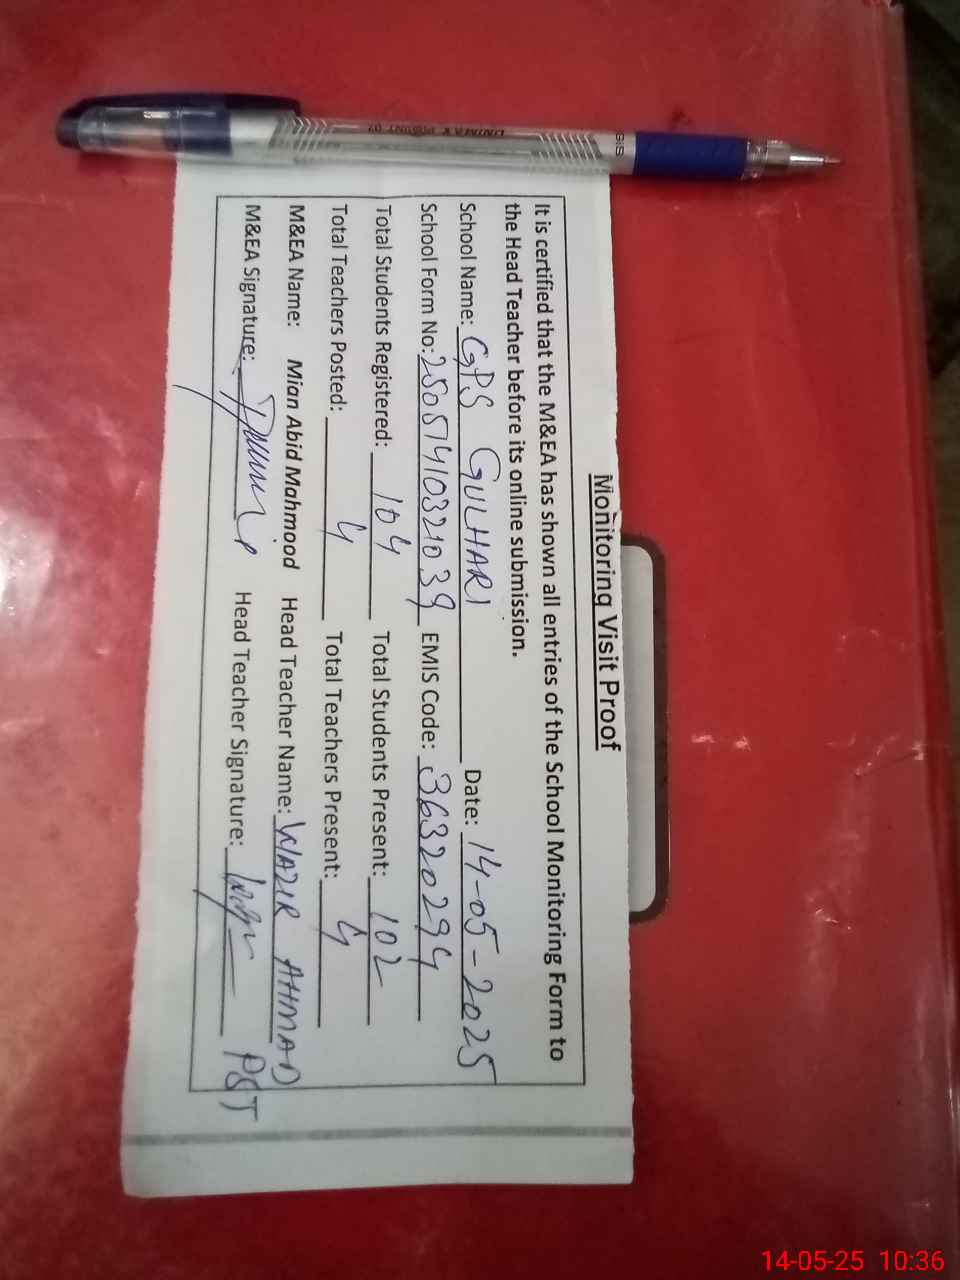 Monitoring Visit Proof
It is certified that the M&EA has shown all entries of the School Monitoring Form to
the Head Teacher before its online submission.
School Name: GPS GULHARI Date: 14-05-2025
School Form No: 25051410321039 EMIS Code: 36320294
Total Students Registered: 104 Total Students Present: 102
Total Teachers Posted: 4 Total Teachers Present: 4
M&EA Name: Mian Abid Mahmood Head Teacher Name: WAZIR AHMAD
M&EA Signature: Head Teacher Signature: PST
14-05-25 10:36